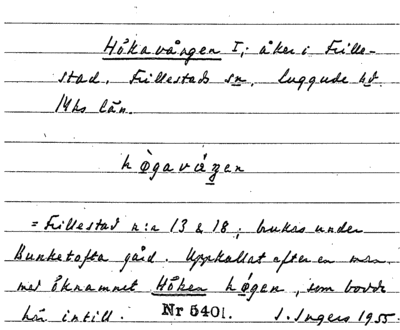 Håkavången I; åker i Fille-
stad, Fillestads sn, Luggude hd
Mhs län.
høgaväŋen
= Fillestad n:r 13 & 18; brukas under
Bunketofta gård. Uppkallat efter en man
med öknamnet Håken høgen, som bodde
här intill. Nr 5401. I. Ingers 1955.